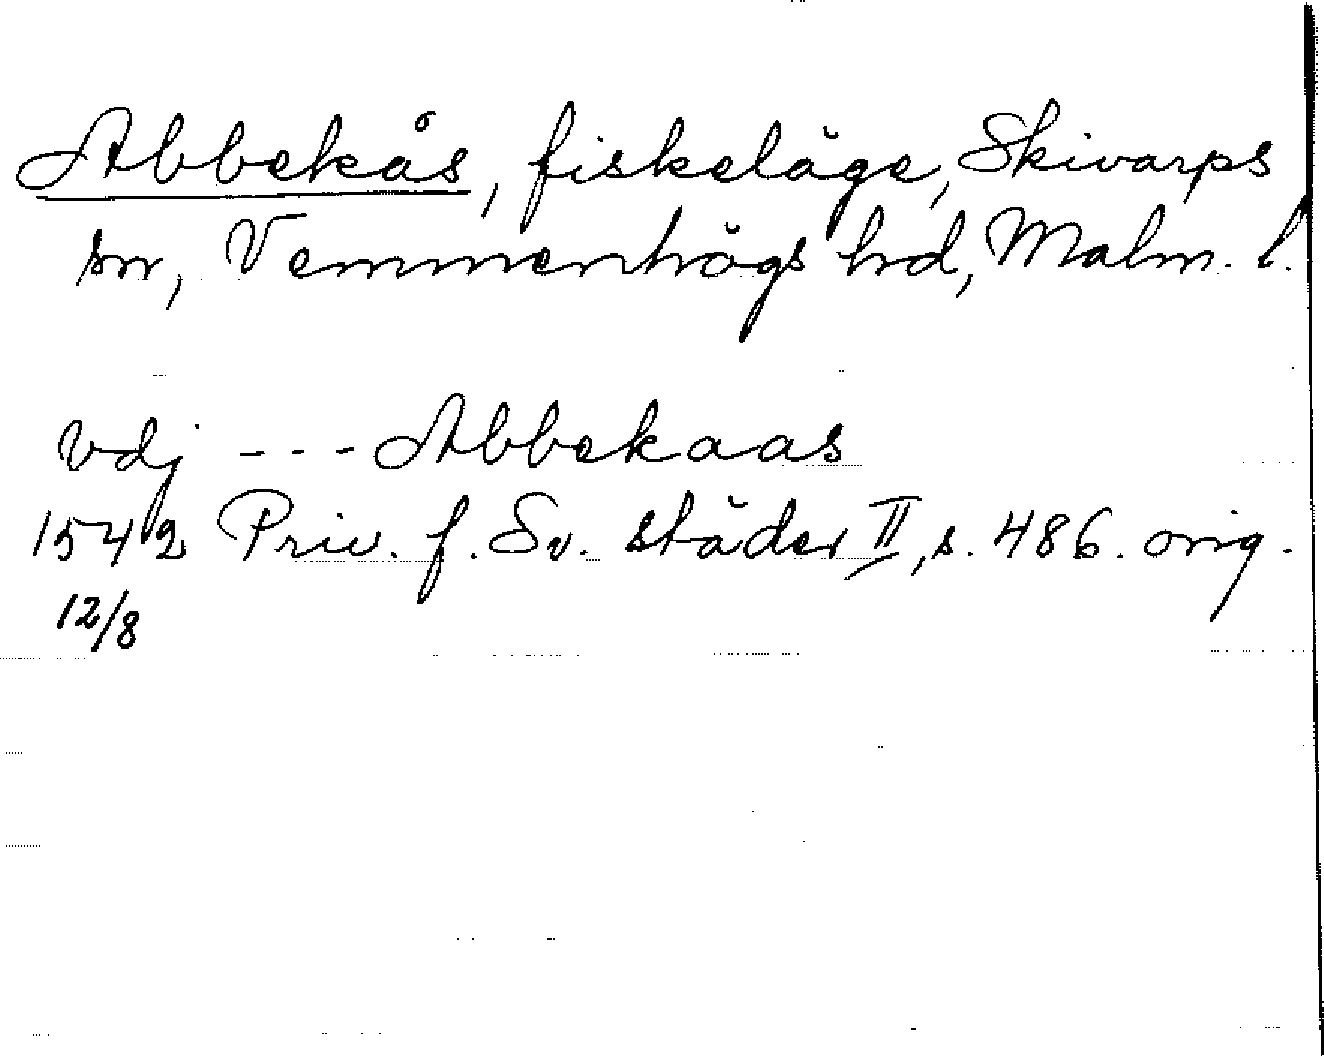 Abbekås, fiskeläge, Skivarps
sn, Vemmenhögs hd, Malm. l.
vdj - - - Abbekaas
1542 Priv. f. Sv. städer II, s. 486. orig.
12/8